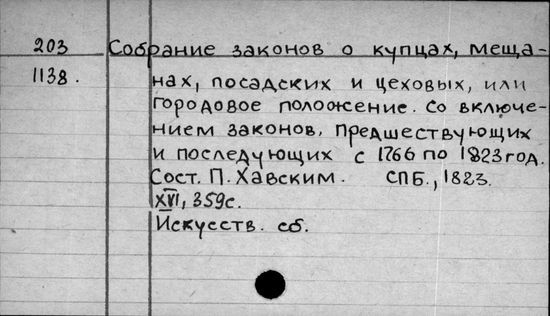 203 Собрание законов о купцах, меща-
1138. нах, посадских и цеховых, или
городовое положение. Со включе-
нием законов, предшествующих
и последующих с 1766 по 1823 год.
Сост. П. Хавским. СПБ., 1823.
XVI, 359с.
Искусств. сб.